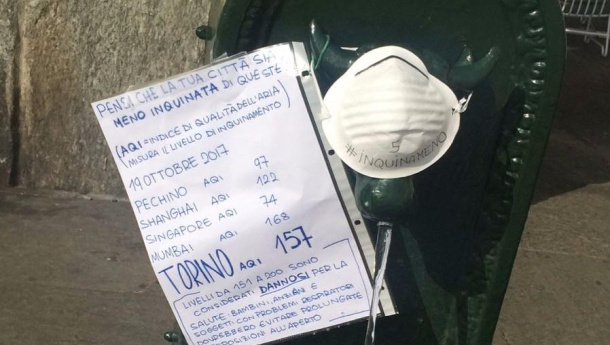 PENSI CHE LA TUA CITTÀ SIA
MENO INQUINATA DI QUESTE
(AQI = INDICE DI QUALITÀ DELL'ARIA
MISURA IL LIVELLO DI INQUINAMENTO)
19 OTTOBRE 2017
PECHINO AQI 97
SHANGHAI AQI 122
SINGAPORE AQI 74
MUMBAI AQI 168
TORINO AQI 157
LIVELLI DA 151 A 200 SONO
CONSIDERATI DANNOSI PER LA
SALUTE. BAMBINI, ANZIANI E
SOGGETTI CON PROBLEMI RESPIRATORI
DOVREBBERO EVITARE PROLUNGATE
ESPOSIZIONI ALL'APERTO
5
#INQUINAMENO